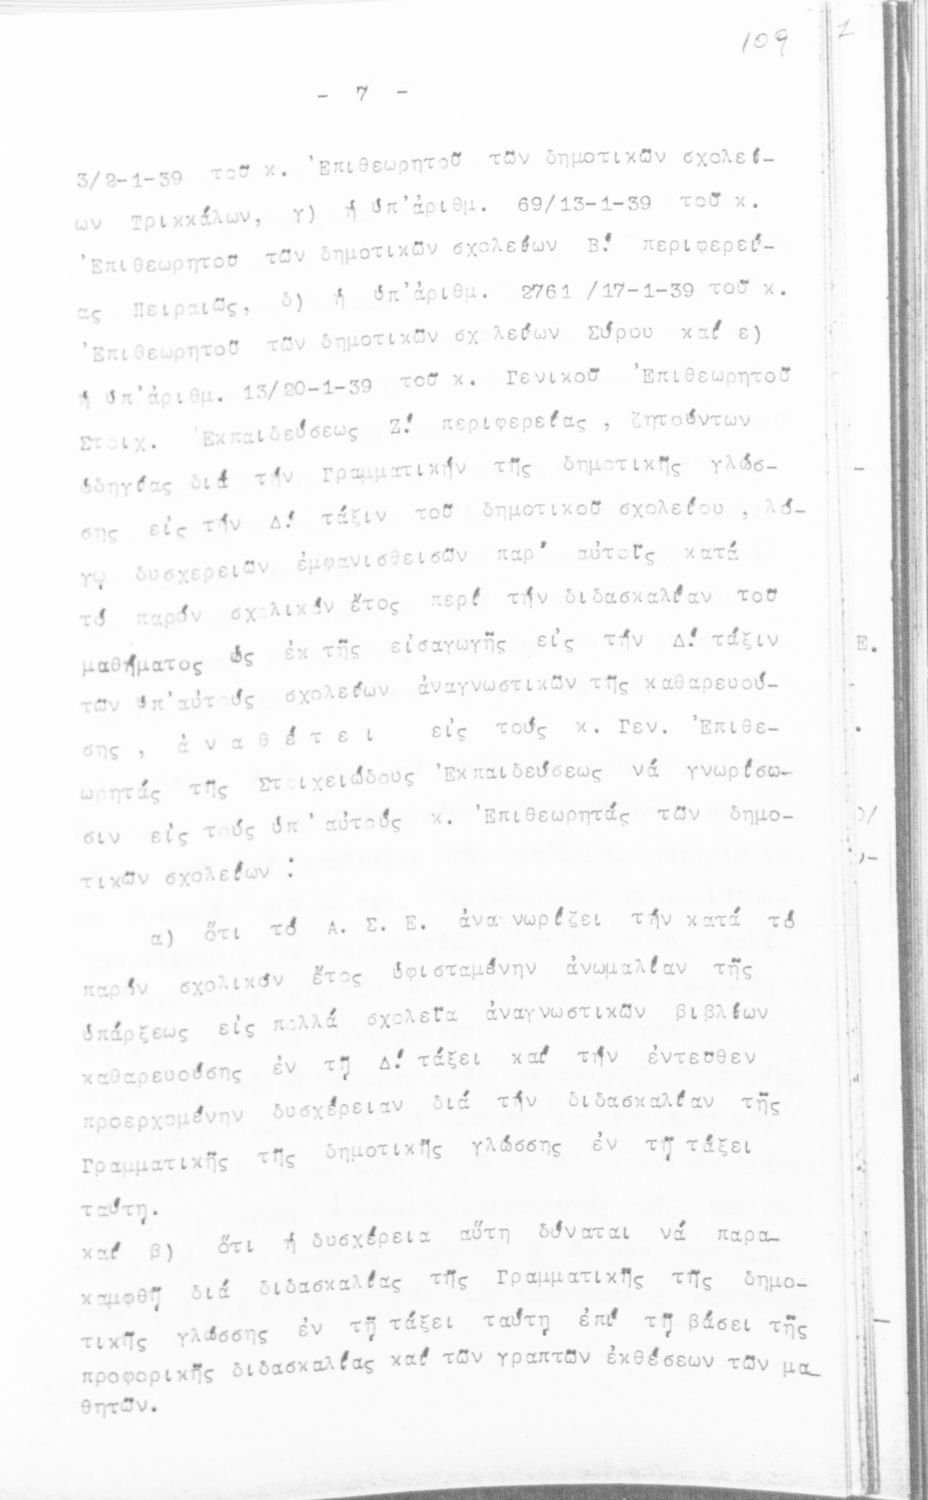 109
- 7 -
3/2-1-39 τοῦ κ. Ἐπιθεωρητοῦ τῶν δημοτικῶν σχολεί-
ων Τρικκάλων, γ) ἡ ὑπ' ἀριθμ. 69/13-1-39 τοῦ κ.
Ἐπιθεωρητοῦ τῶν δημοτικῶν σχολείων Β! περιφερεί-
ας Πειραιῶς, δ) ἡ ὑπ' ἀριθμ. 2761 /17-1-39 τοῦ κ.
Ἐπιθεωρητοῦ τῶν δημοτικῶν σχολείων Σύρου καί ε)
ἡ ὑπ' ἀριθμ. 13/20-1-39 τοῦ κ. Γενικοῦ Ἐπιθεωρητοῦ
Στοιχ. Ἐκπαιδεύσεως Ζ! περιφερείας , ζητούντων
ὁδηγίας διά τήν Γραμματικήν τῆς δημοτικῆς γλώσ-
σης εἰς τήν Δ! τάξιν τοῦ δημοτικοῦ σχολείου , λό-
γῳ δυσχερειῶν ἐμφανισθεισῶν παρ' αὐτοῖς κατά
τό παρόν σχολικόν ἔτος περί τήν διδασκαλίαν τοῦ
μαθήματος ὡς ἐκ τῆς εἰσαγωγῆς εἰς τήν Δ! τάξιν
τῶν ὑπ' αὐτούς σχολείων ἀναγνωστικῶν τῆς καθαρευού-
σης , ἀ ν α θ έ τ ε ι εἰς τούς κ. Γεν. Ἐπιθε-
ωρητάς τῆς Στοιχειώδους Ἐκπαιδεύσεως νά γνωρίσω-
σιν εἰς τούς ὑπ' αὐτούς κ. Ἐπιθεωρητάς τῶν δημο-
τικῶν σχολείων :
α) ὅτι τό Α. Σ. Ε. ἀναγνωρίζει τήν κατά τό
παρόν σχολικόν ἔτος ὑφισταμένην ἀνωμαλίαν τῆς
ὑπάρξεως εἰς πολλά σχολεῖα ἀναγνωστικῶν βιβλίων
καθαρευούσης ἐν τῇ Δ! τάξει καί τήν ἐντεῦθεν
προερχομένην δυσχέρειαν διά τήν διδασκαλίαν τῆς
Γραμματικῆς τῆς δημοτικῆς γλώσσης ἐν τῇ τάξει
ταύτῃ.
καί β) ὅτι ἡ δυσχέρεια αὕτη δύναται νά παρα-
καμφθῇ διά διδασκαλίας τῆς Γραμματικῆς τῆς δημο-
τικῆς γλώσσης ἐν τῇ τάξει ταύτῃ ἐπί τῇ βάσει τῆς
προφορικῆς διδασκαλίας καί τῶν γραπτῶν ἐκθέσεων τῶν μα-
θητῶν.